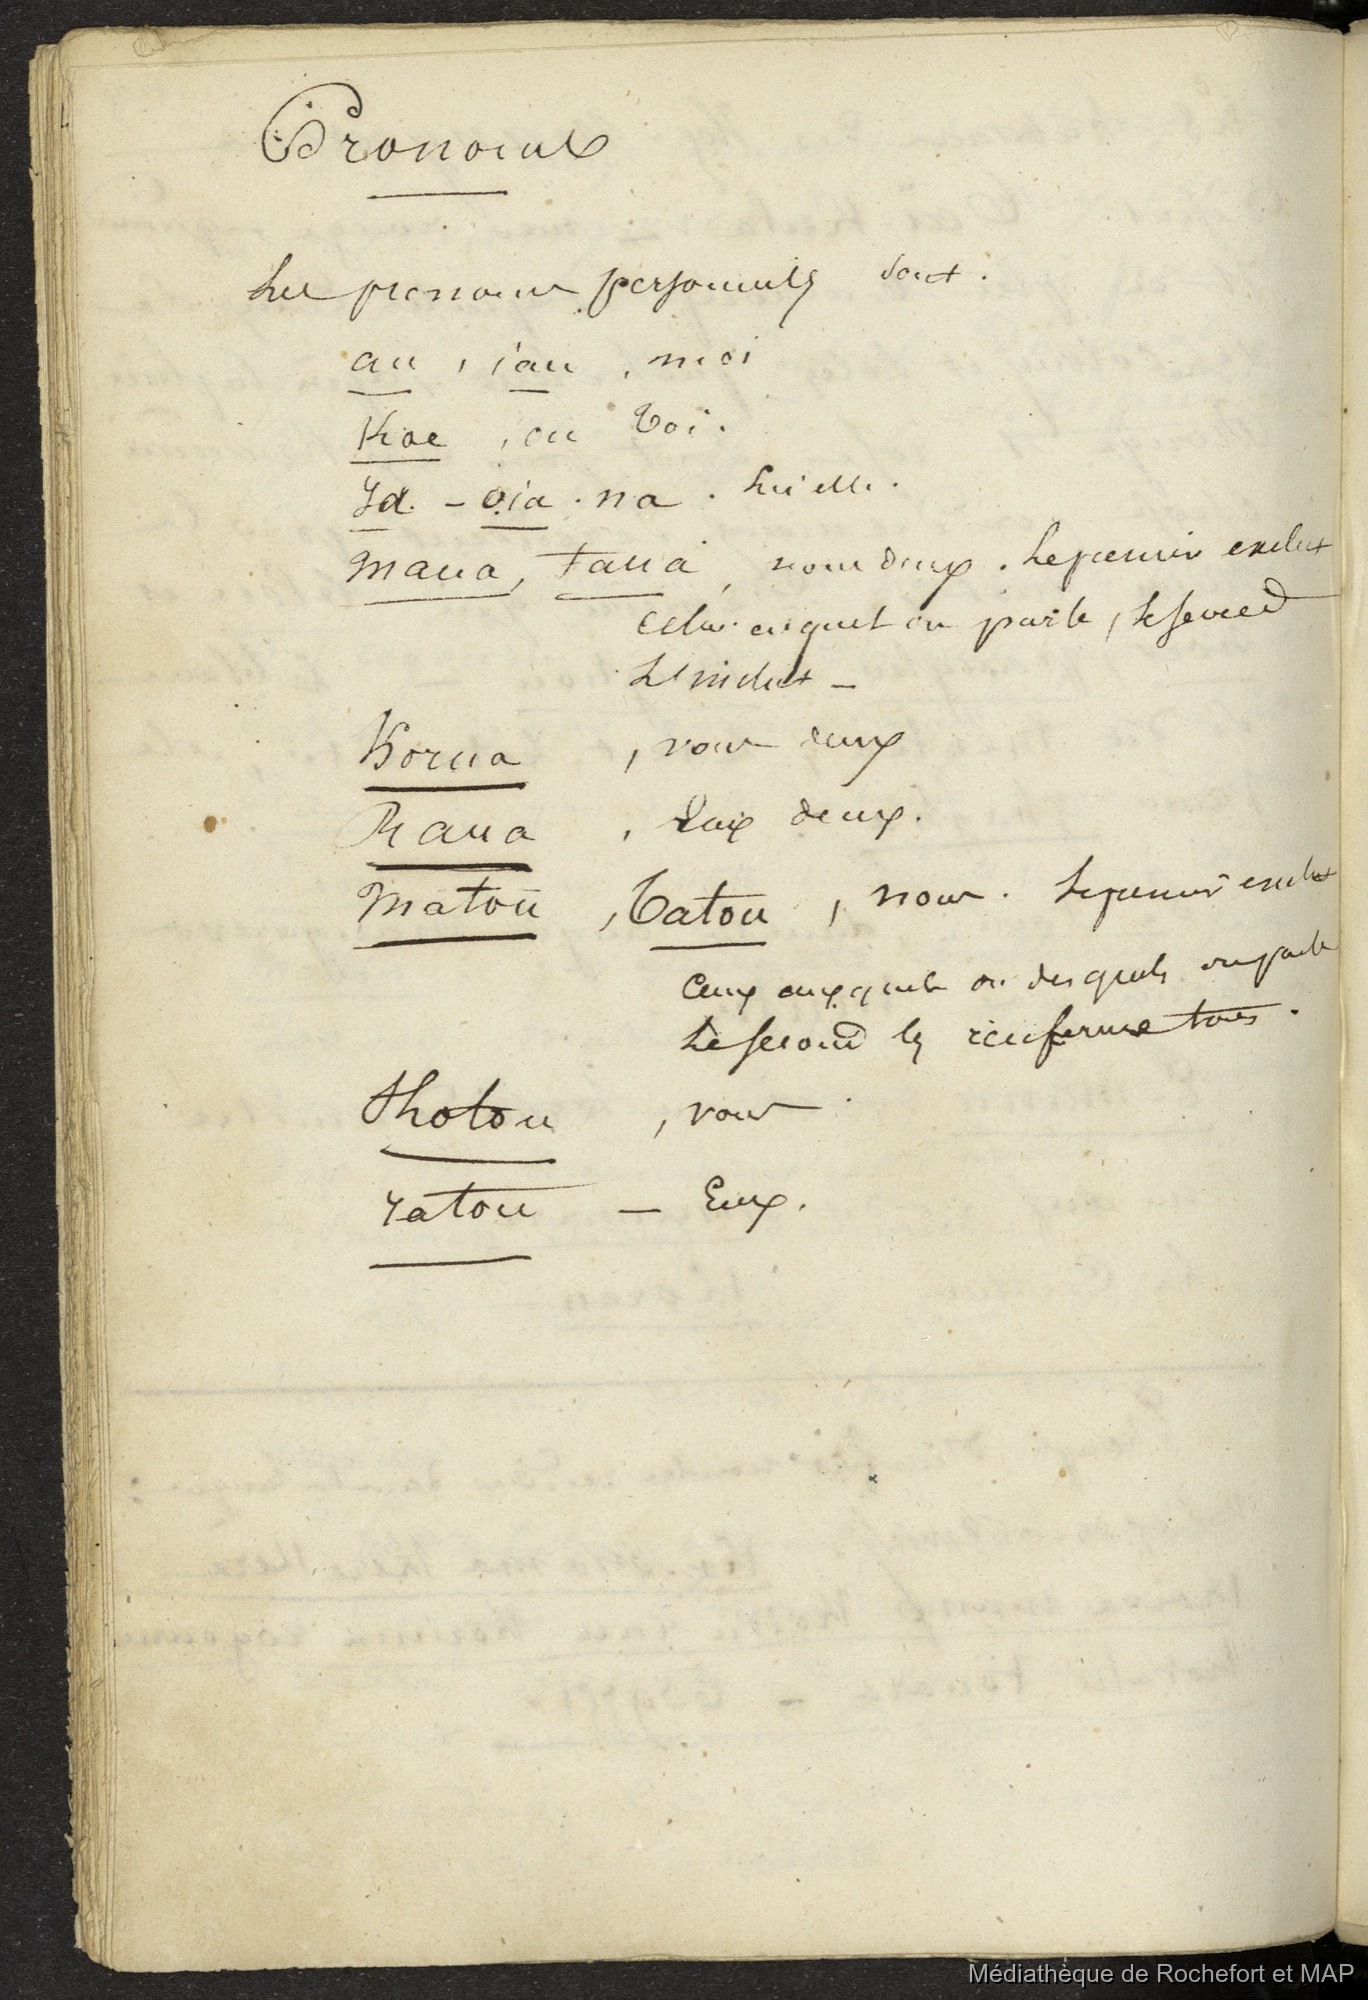 Pronoms
Les pronoms personnels sont.
au, iau, moi
Koe, ou toi.
Ia. - oia. na. lui elle.
Maua, Taua, nous deux. Le premier exclut
celui auquel on parle, le second
l'inclut -
Korua, vous deux
Raua, Eux deux.
Matou, Tatou, nous. Le premier exclut
ceux auxquels ou desquels on parle
Le second les renferme tous.
Kotou, vous
ratou - Eux.
Médiathèque de Rochefort et MAP